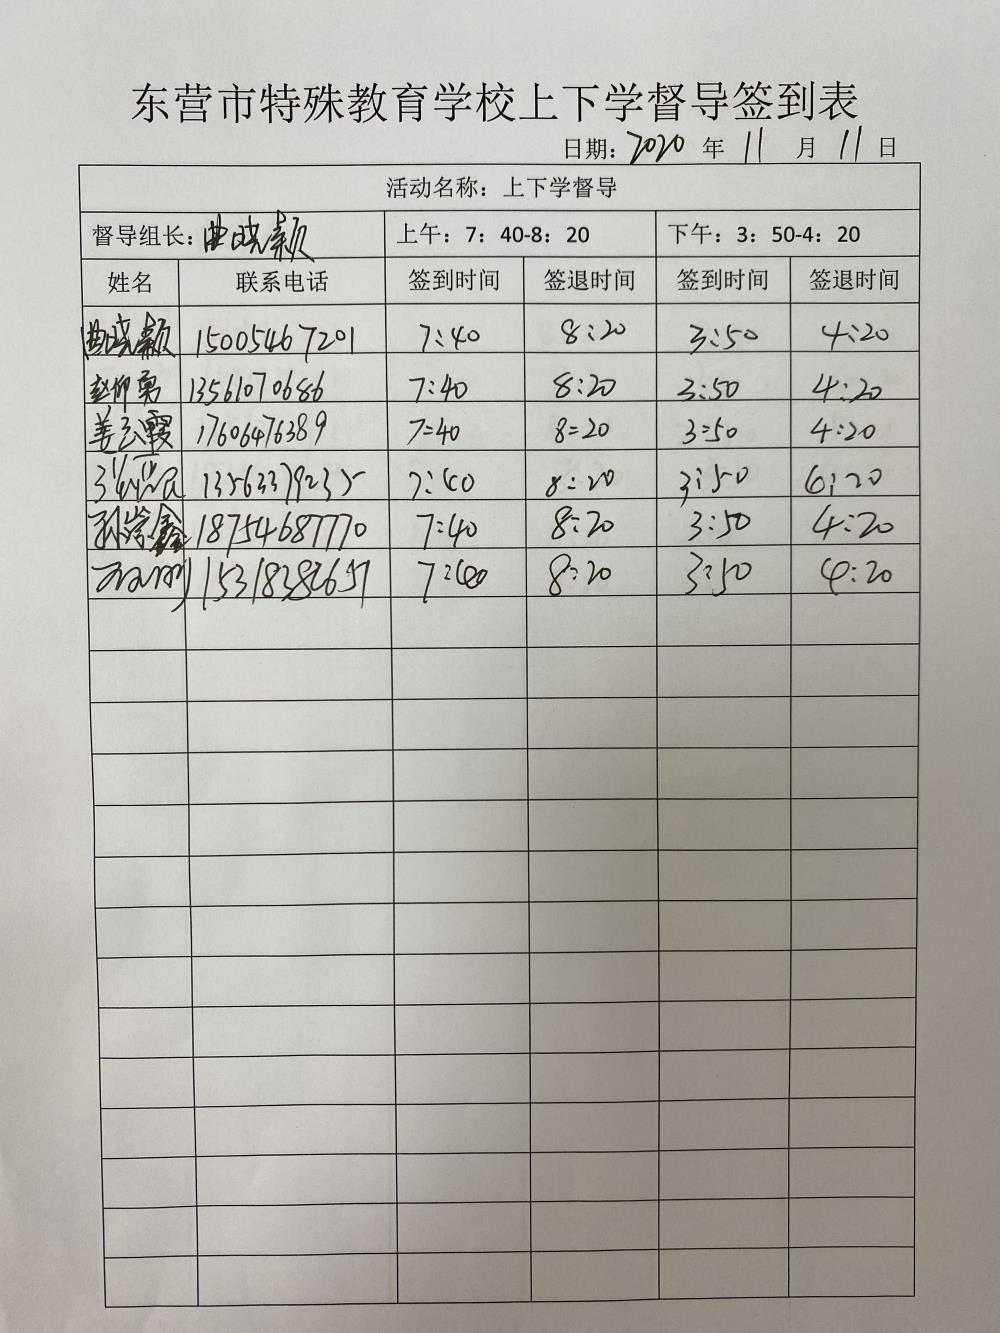 东营市特殊教育学校上下学督导签到表
日期：2020 年 11 月 11 日
活动名称：上下学督导
督导组长：曲晓颖 上午：7：40-8：20 下午：3：50-4：20
姓名 联系电话 签到时间 签退时间 签到时间 签退时间
曲晓颖 15005467201 7:40 8:20 3:50 4:20
赵仰勇 13561070686 7:40 8:20 3:50 4:20
姜云霞 17606476389 7:40 8:20 3:50 4:20
13563379235 7:40 8:20 3:50 6:20
孙崇鑫 18754687770 7:40 8:20 3:50 4:20
7:40 8:20 3:50 4:20